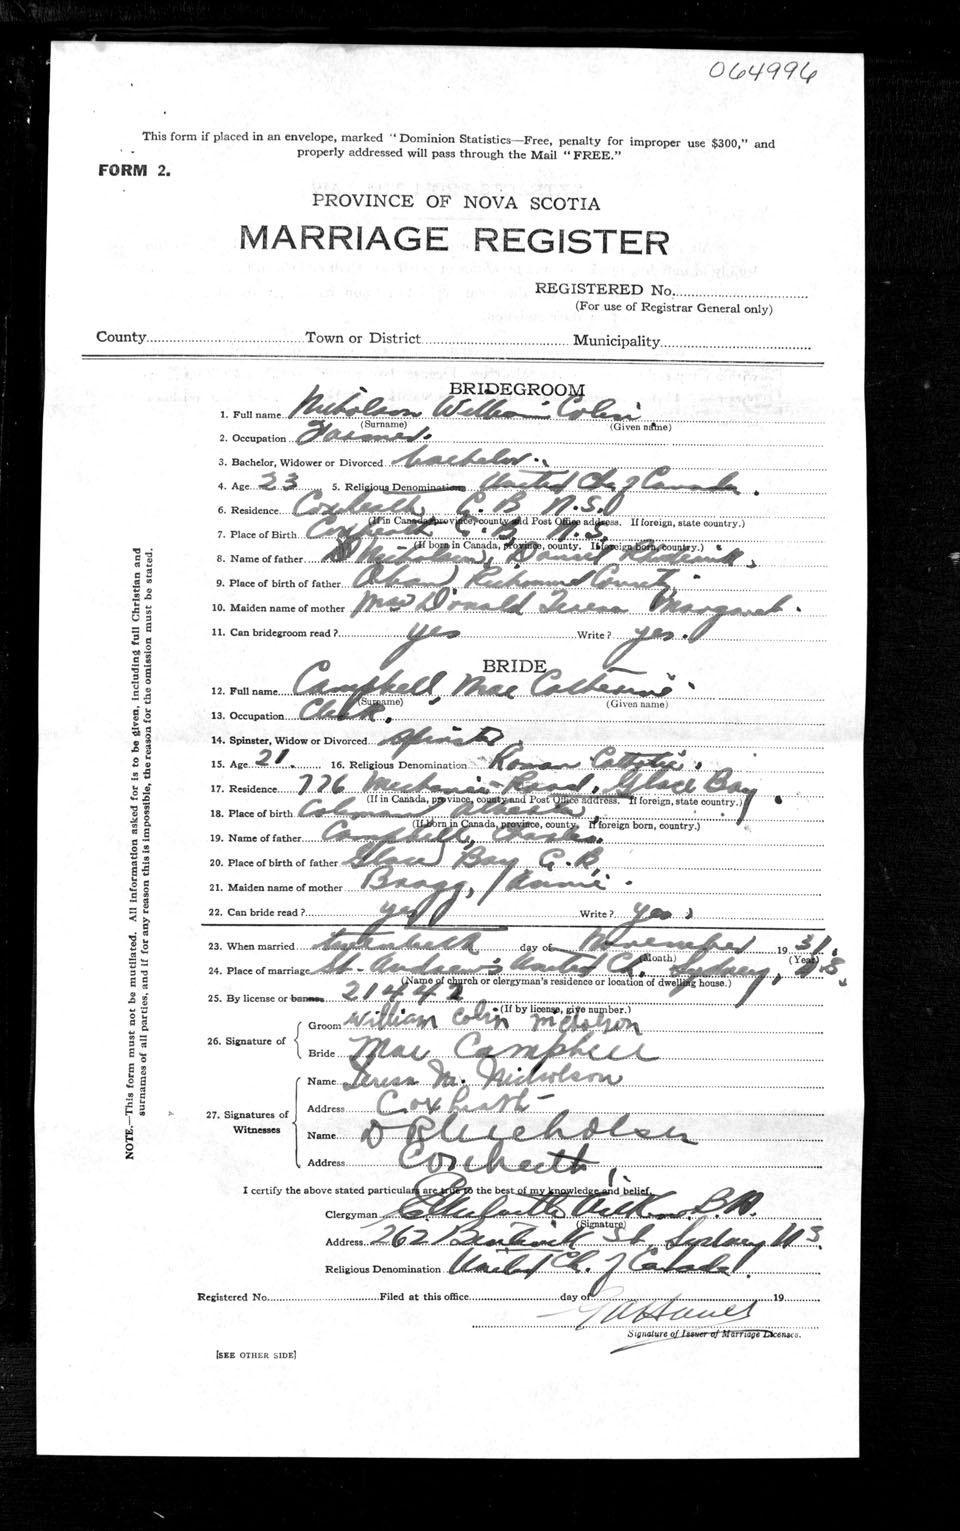 064996
This form if placed in an envelope, marked "Dominion Statistics—Free, penalty for improper use $300," and
properly addressed will pass through the Mail "FREE."
FORM 2.
PROVINCE OF NOVA SCOTIA
MARRIAGE REGISTER
REGISTERED No.
(For use of Registrar General only)
County Town or District Municipality
BRIDEGROOM
1. Full name Nicholson William Colin
(Surname) (Given name)
2. Occupation Farmer.
3. Bachelor, Widower or Divorced bachelor.
4. Age 23 5. Religious Denomination United Ch. of Canada.
6. Residence Coxheath C. B. N. S.
(If in Canada, province, county and Post Office address. If foreign, state country.)
7. Place of Birth Coxheath C. B. N. S.
(If born in Canada, province, county. If foreign born, country.)
8. Name of father Nicholson, Daniel
9. Place of birth of father Richmond County
10. Maiden name of mother MacDonald Teresa Margaret.
11. Can bridegroom read? yes Write? yes.
BRIDE
12. Full name Campbell, Mae Catherine
(Surname) (Given name)
13. Occupation Clerk.
14. Spinster, Widow or Divorced Spinster
15. Age 21. 16. Religious Denomination Roman Catholic.
17. Residence 776 Road, Glace Bay.
(If in Canada, province, county and Post Office address. If foreign, state country.)
18. Place of birth Coleman Alberta
(If born in Canada, province, county. If foreign born, country.)
19. Name of father Campbell, Charles.
20. Place of birth of father Glace Bay C. B.
21. Maiden name of mother Bragg, Annie.
22. Can bride read? yes Write? yes
23. When married day of November 1931.
(Month) (Year)
24. Place of marriage St. Andrew's United Ch. Sydney, N.S.
(Name of church or clergyman's residence or location of dwelling house.)
25. By license or bannes 21442
(If by license, give number.)
26. Signature of
Groom William Colin Nicholson
Bride Mae Campbell
27. Signatures of
Witnesses
Name Teresa M. Nicholson
Address Coxheath
Name Nicholson
Address Coxheath
I certify the above stated particulars are true to the best of my knowledge and belief.
Clergyman B.A.
(Signature)
Address 262 Bentinck St. Sydney N S.
Religious Denomination United Ch. of Canada.
Registered No. Filed at this office day of 19
Signature of Issuer of Marriage Licenses.
[SEE OTHER SIDE]
NOTE.—This form must not be mutilated. All information asked for is to be given, including full Christian and
surnames of all parties, and if for any reason this is impossible, the reason for the omission must be stated.